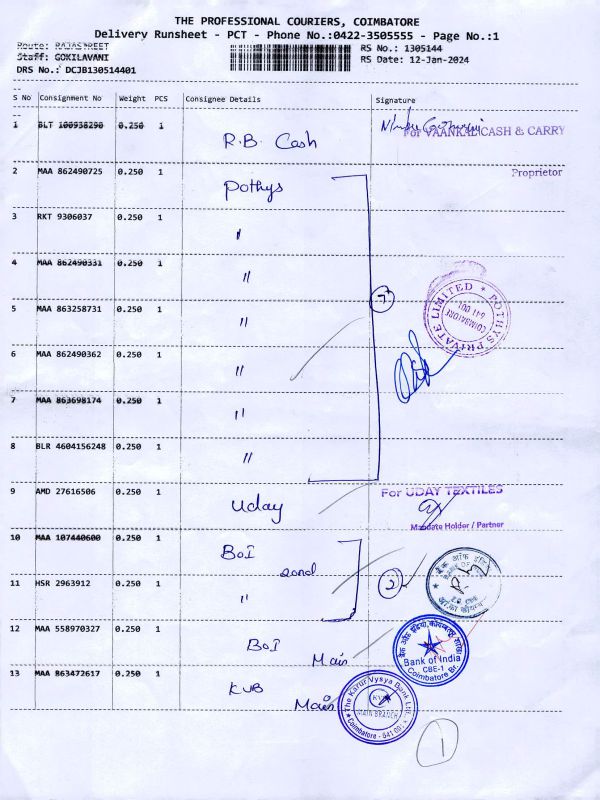 THE PROFESSIONAL COURIERS, COIMBATORE
Delivery Runsheet - PCT - Phone No.:0422-3505555 - Page No.:1
Route: RAJASTREET
Staff: GOKILAVANI
DRS No.: DCJB130514401
RS No.: 1305144
RS Date: 12-Jan-2024
S No Consignment No Weight PCS Consignee Details Signature
1 BLT 100938290 0.250 1 R.B. Cash
For VAANKAL CASH & CARRY
Proprietor
2 MAA 862490725 0.250 1 Pothys
3 RKT 9306037 0.250 1 "
4 MAA 862490331 0.250 1 "
5 MAA 863258731 0.250 1 "
6 MAA 862490362 0.250 1 "
7 MAA 863698174 0.250 1 "
8 BLR 4604156248 0.250 1 "
7
POTHYS PRIVATE LIMITED
COIMBATORE
641 001
9 AMD 27616506 0.250 1 Uday
For UDAY TEXTILES
Mandate Holder / Partner
10 MAA 107440600 0.250 1 BOI
zonal
11 HSR 2963912 0.250 1 "
2
12 MAA 558970327 0.250 1 BOI Main
Bank of India
CBE-1
Coimbatore Br.
13 MAA 863472617 0.250 1 KVB Main
The Karur Vysya Bank Ltd.
KVB
MAIN BRANCH
Coimbatore - 641 001
1